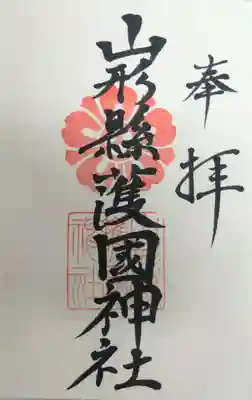 奉拝
山形縣護國神社